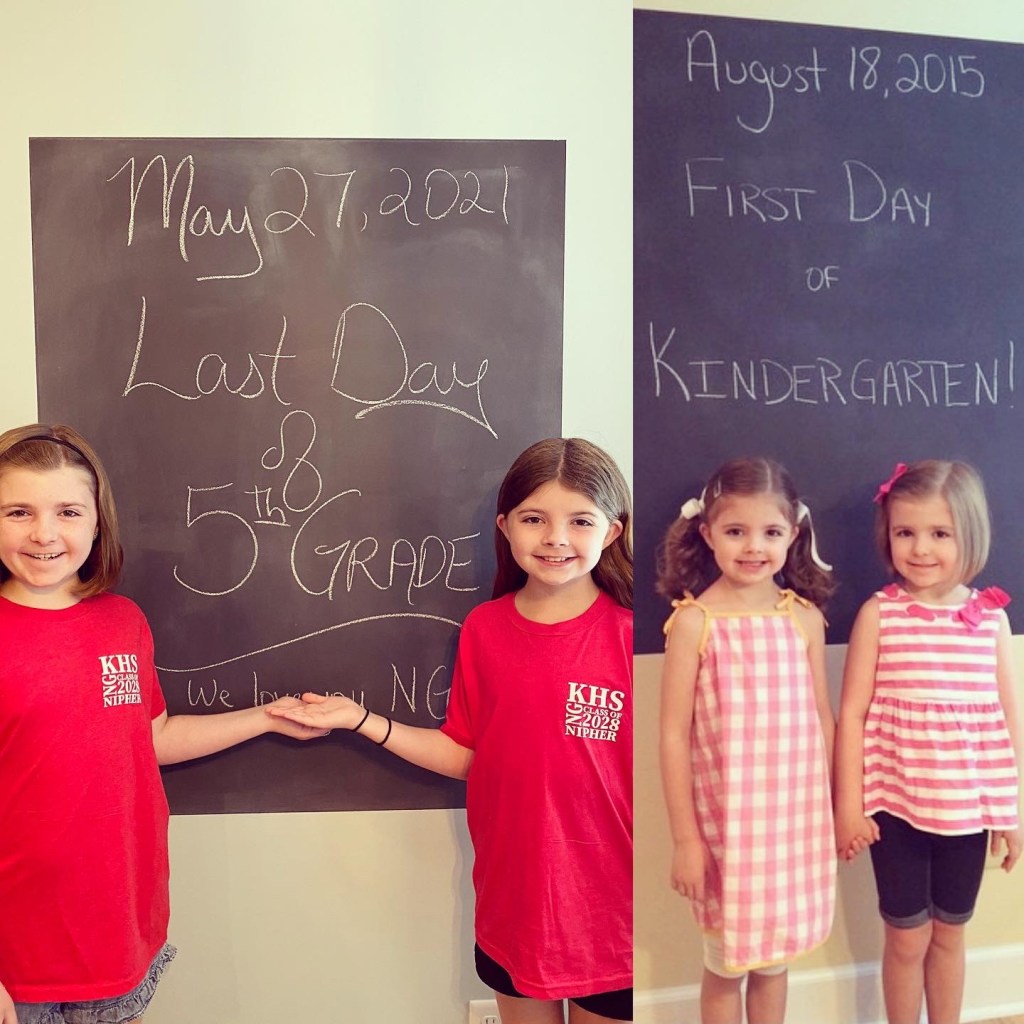 May 27, 2021
Last Day
of
5th Grade
We love you NG
KHS
NG
CLASS OF
2028
NIPHER
KHS
NG
CLASS OF
2028
NIPHER
August 18, 2015
First Day
of
Kindergarten!